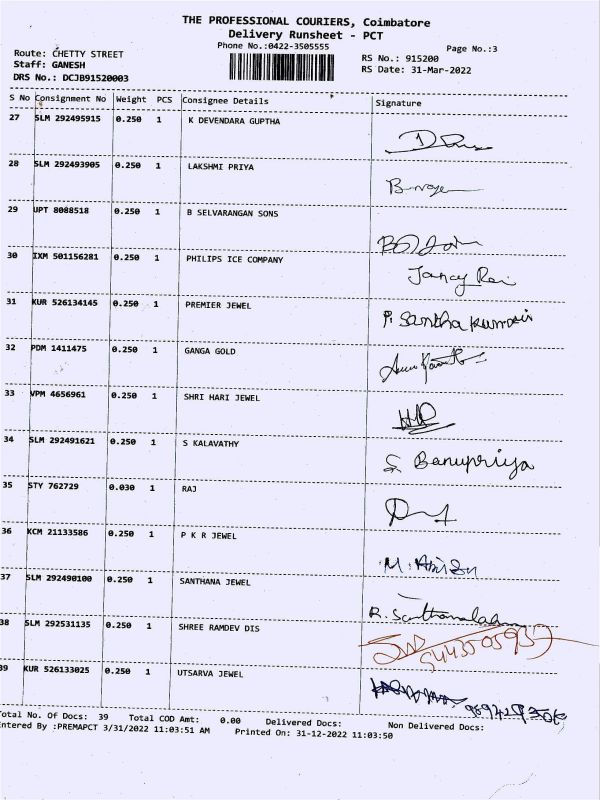 THE PROFESSIONAL COURIERS, Coimbatore
Delivery Runsheet - PCT
Phone No.:0422-3505555
Page No.:3
Route: CHETTY STREET
Staff: GANESH
DRS No.: DCJB91520003
RS No.: 915200
RS Date: 31-Mar-2022
S No Consignment No Weight PCS Consignee Details Signature
27 SLM 292495915 0.250 1 K DEVENDARA GUPTHA
28 SLM 292493905 0.250 1 LAKSHMI PRIYA
29 UPT 8088518 0.250 1 B SELVARANGAN SONS
30 IXM 501156281 0.250 1 PHILIPS ICE COMPANY
Jancy Rai
31 KUR 526134145 0.250 1 PREMIER JEWEL
P. Santhakumari
32 PDM 1411475 0.250 1 GANGA GOLD
33 VPM 4656961 0.250 1 SHRI HARI JEWEL
34 SLM 292491621 0.250 1 S KALAVATHY
S Banupriya
35 STY 762729 0.030 1 RAJ
36 KCM 21133586 0.250 1 P K R JEWEL
37 SLM 292490100 0.250 1 SANTHANA JEWEL
R. Santhanalakshmi
38 SLM 292531135 0.250 1 SHREE RAMDEV DIS
39 KUR 526133025 0.250 1 UTSARVA JEWEL
Total No. Of Docs: 39 Total COD Amt: 0.00 Delivered Docs: Non Delivered Docs:
Entered By :PREMAPCT 3/31/2022 11:03:51 AM Printed On: 31-12-2022 11:03:50